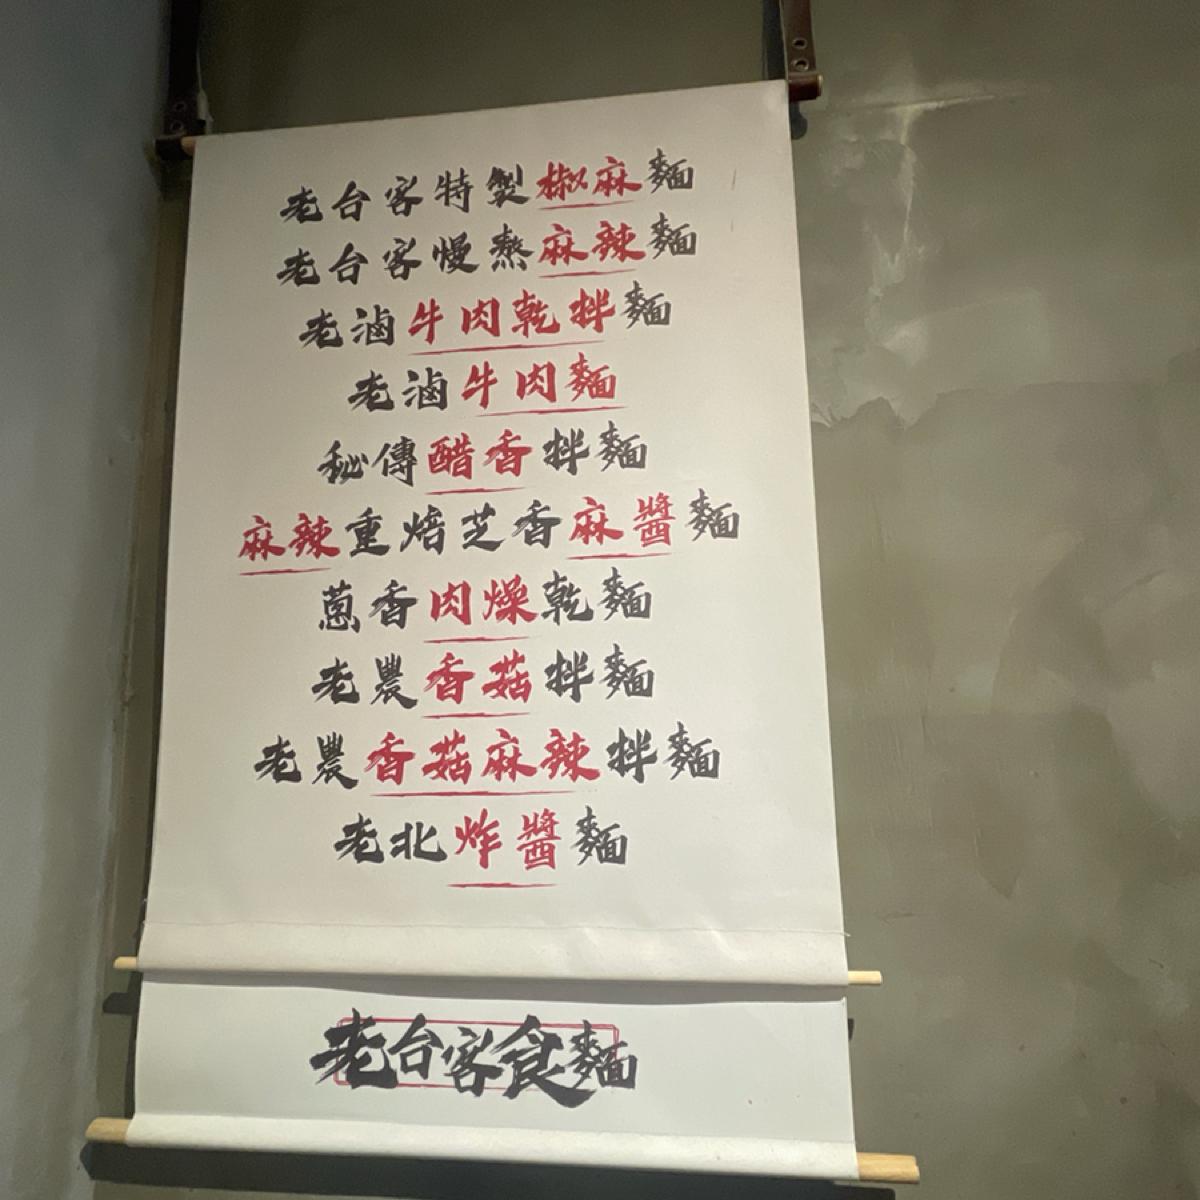 老台客特製椒麻麵
老台客慢熬麻辣麵
老滷牛肉乾拌麵
老滷牛肉麵
秘傳醋香拌麵
麻辣重焙芝香麻醬麵
蔥香肉燥乾麵
老農香菇拌麵
老農香菇麻辣拌麵
老北炸醬麵
老台客食麵